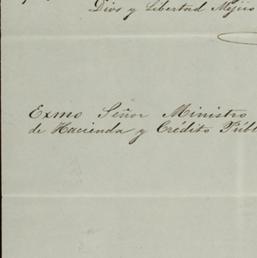 Dios y Libertad Mejico
Exmo Señor Ministro
de Hacienda y Crédito Públ